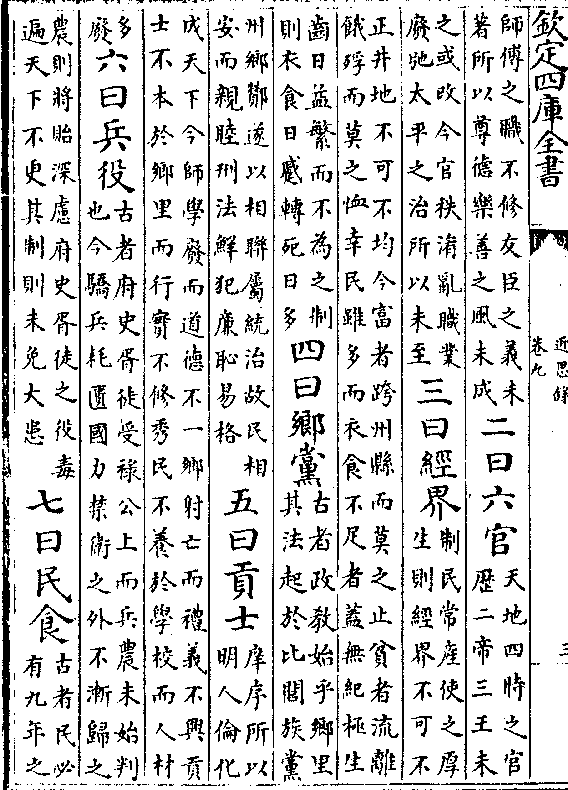 欽定四庫全書
近思錄
卷九
三
師傅之職不修友臣之義未
著所以尊德樂善之風未成
二曰六官
天地四時之官
歷二帝三王未
之或改今官秩淆亂職業
廢弛太平之治所以未至
三曰經界
制民常產使之厚
生則經界不可不
正井地不可不均今富者跨州縣而莫之止貧者流離
餓殍而莫之恤幸民雖多而衣食不足者蓋無紀極生
齒日益繁而不為之制
則衣食日蹙轉死日多
四曰鄉黨
古者政教始乎鄉里
其法起於比閭族黨
州鄉酇遂以相聯屬統治故民相
安而親睦刑法鮮犯廉恥易格
五曰貢士
庠序所以
明人倫化
成天下今師學廢而道德不一鄉射亡而禮義不興貢
士不本於鄉里而行實不修秀民不養於學校而人材
多
廢
六曰兵役
古者府史胥徒受祿公上而兵農未始判
也今驕兵耗匱國力禁衛之外不漸歸之
農則將貽深慮府史胥徒之役毒
遍天下不更其制則未免大患
七曰民食
古者民必
有九年之